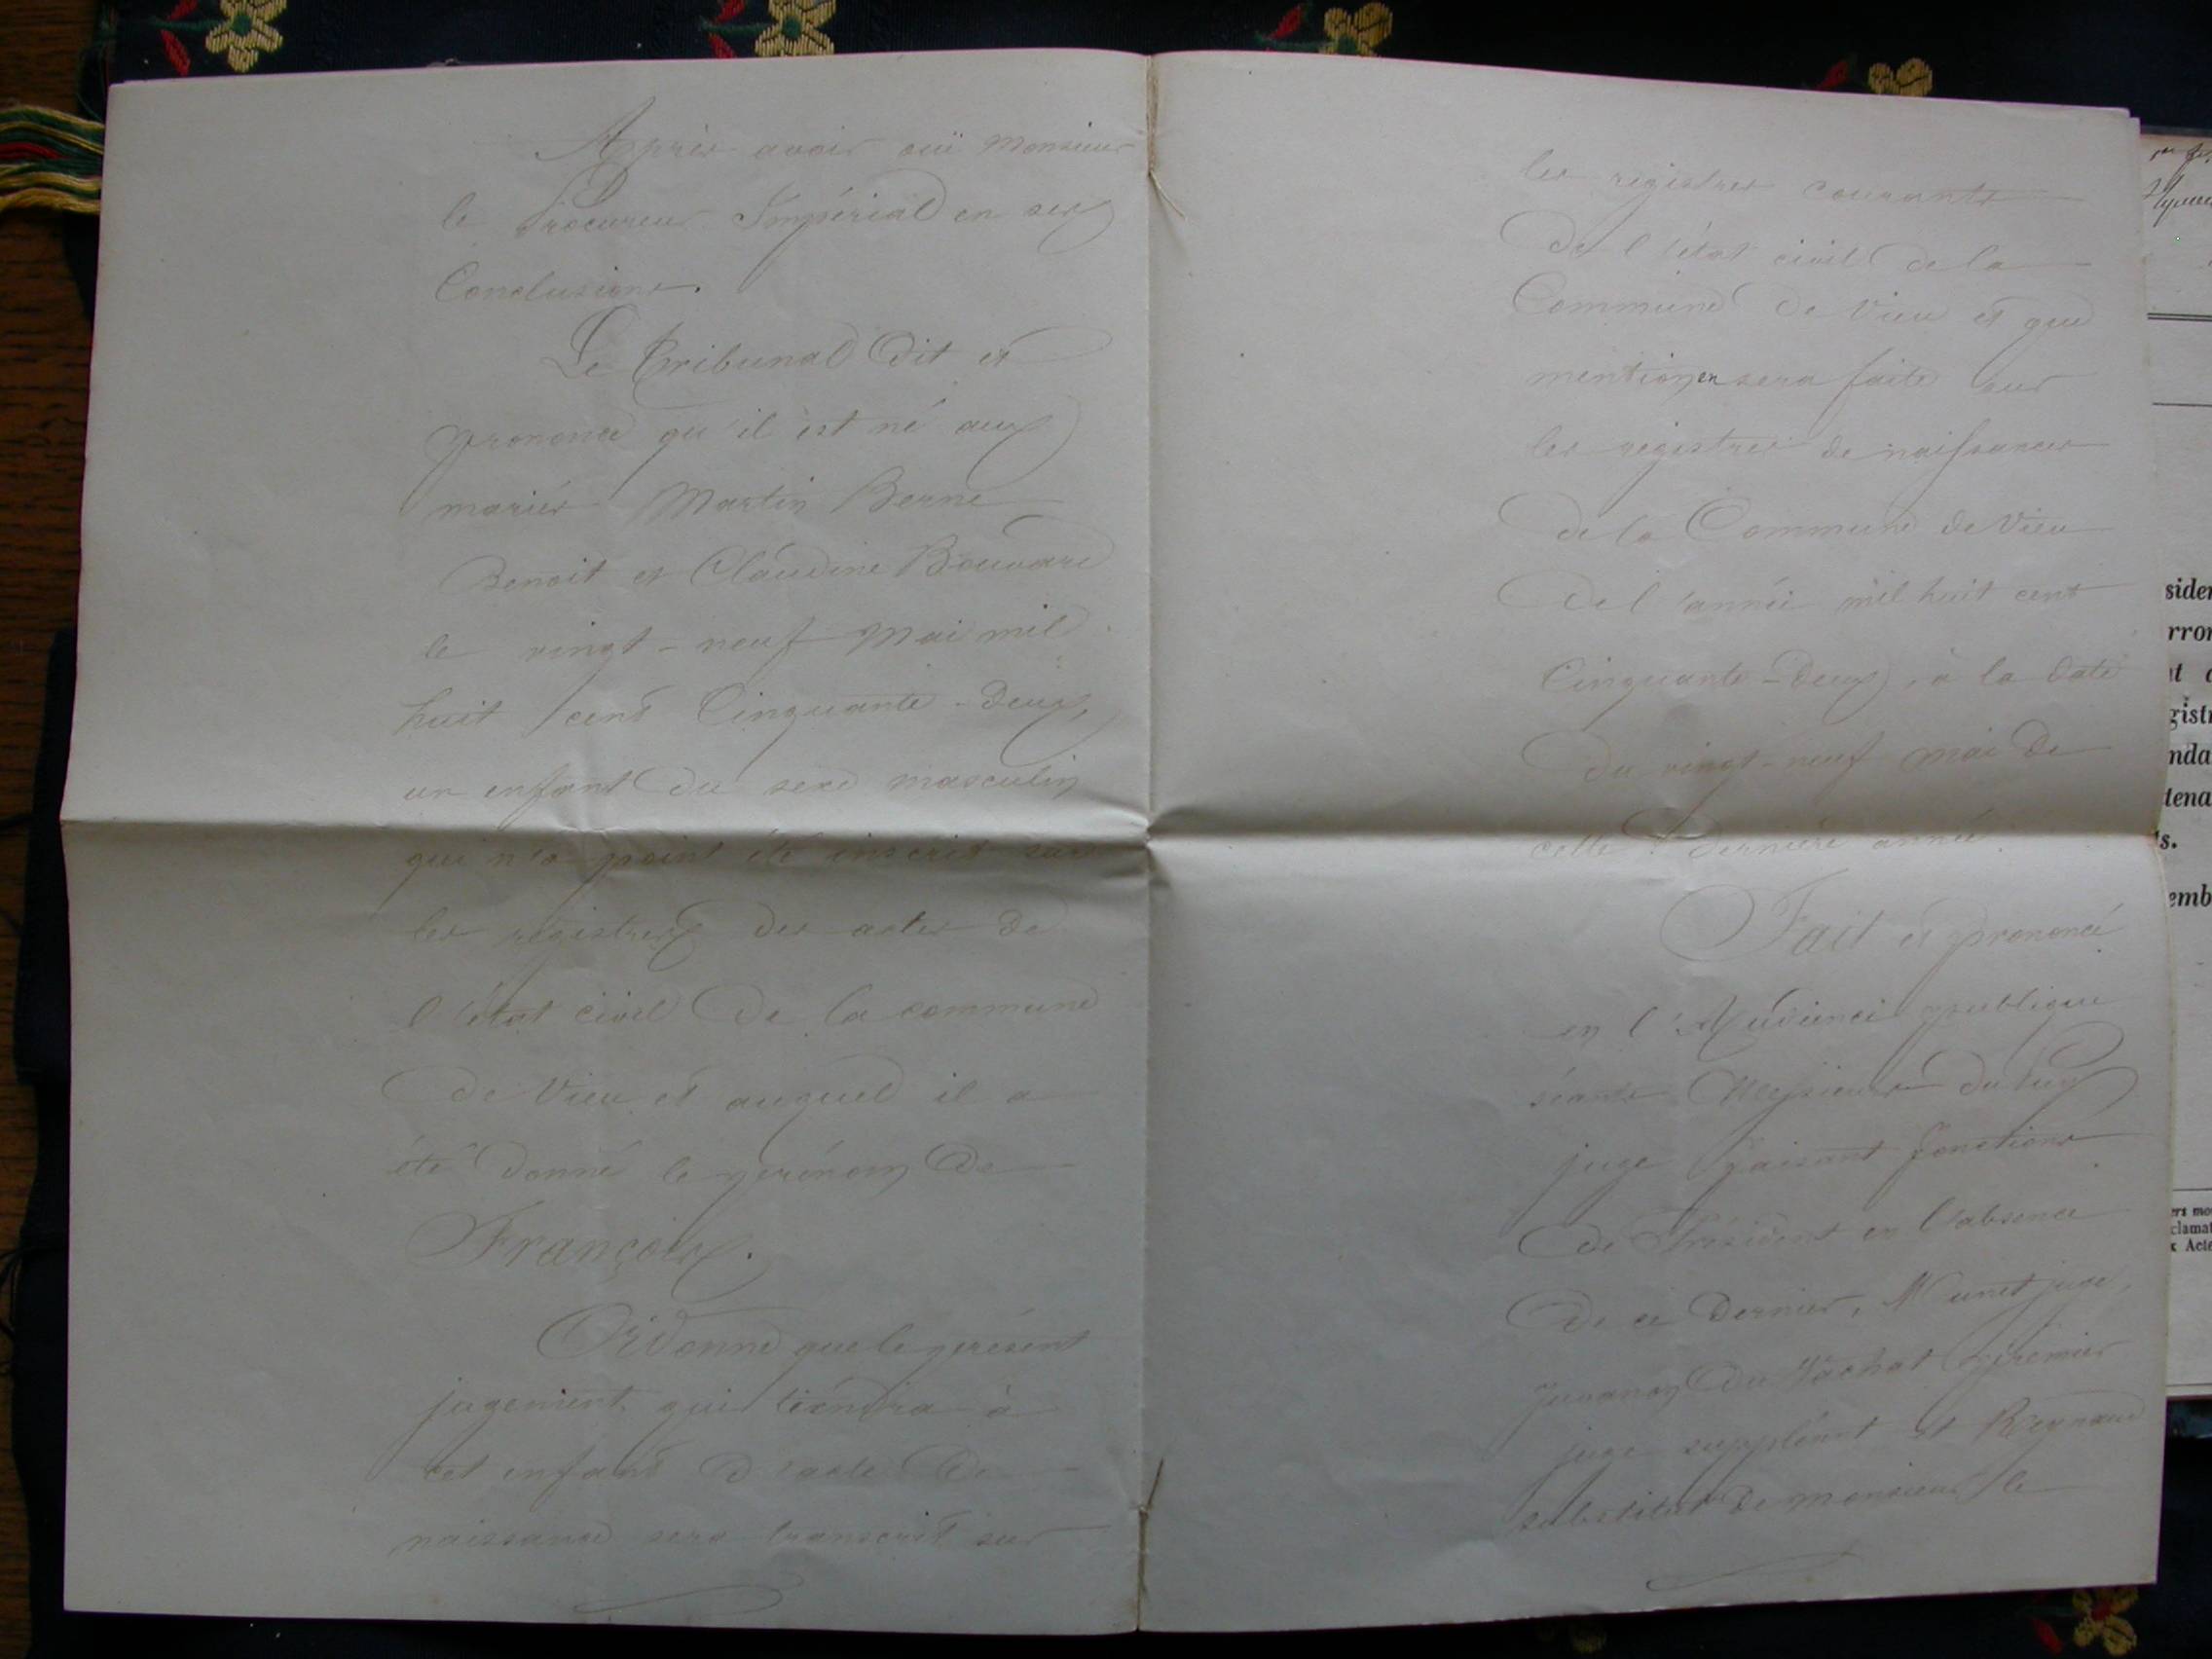 Après avoir ouï Monsieur
le Procureur Impérial en ses
Conclusions.
Le Tribunal dit et
prononce qu'il est né aux
mariés Martin Berne
Benoit et Claudine Bouvard
le vingt-neuf Mai mil
huit cent Cinquante-Deux,
un enfant du sexe masculin
qui n'a point été inscrit sur
les registres des actes de
l'état civil de la commune
de Vieu et auquel il a
été donné le prénom de
François.
Ordonne que le présent
jugement, qui tiendra à
cet enfant d'acte de
naissance sera transcrit sur
les registres courants
de l'état civil de la
Commune de Vieu et que
mention en sera faite sur
les registres de naissances
de la Commune de Vieu
de l'année mil huit cent
Cinquante-Deux, à la date
du vingt-neuf mai de
cette dernière année.
Fait et prononcé
en l'Audience publique
séants Messieurs Dubuy
juge faisant fonctions
de Président en l'absence
de ce dernier, Munet juge,
Juvanon du Vachat premier
juge suppléant et Reynaud
substitut de monsieur le
sider
rror
gist
nda
tena
s.
emb
ers mo
clamat
x Acte